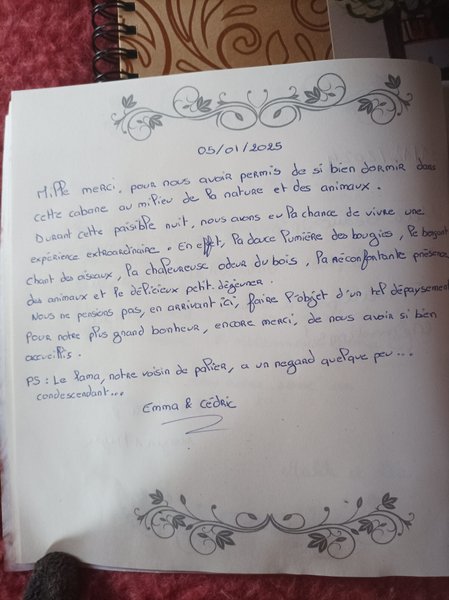 05/01/2025
Mille merci, pour nous avoir permis de si bien dormir dans
cette cabane au milieu de la nature et des animaux.
Durant cette paisible nuit, nous avons eu la chance de vivre une
expérience extraordinaire. En effet, la douce lumière des bougies, le
chant des oiseaux, la chaleureuse odeur du bois, la réconfortante présence
des animaux et le délicieux petit-déjeuner.
Nous ne pensions pas, en arrivant ici, faire l'objet d'un tel dépaysement
Pour notre plus grand bonheur, encore merci, de nous avoir si bien
accueillis.
PS : Le lama, notre voisin de palier, a un regard quelque peu...
condescendant...
Emma & Cédric